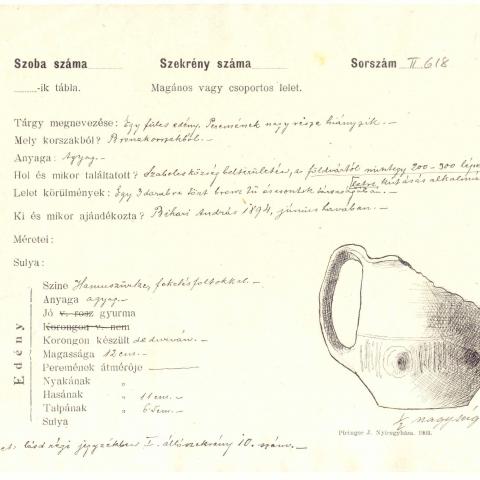 Szoba száma Szekrény száma Sorszám II 618
-ik tábla. Magános vagy csoportos lelet.
Tárgy megnevezése: Egy füles edény. Peremének nagy része hiányzik. —
Mely korszakból? Bronzkorszakból. —
Anyaga: Agyag. —
Hol és mikor találtatott? Szabolcs község belterületén, a földvártól mintegy 200-300 lépés
Lelet körülmények: Egy 3 darabra tört bronz tű és csontok társaságában. —
Ki és mikor ajándékozta? Bihari András 1894, június havában. —
Méretei:
Sulya:
Edény
Szine Hamuszürke, fekete foltokkal. —
Anyaga agyag. —
Jó v. rosz gyurma
Korongon v. nem
Korongon készült de durván. —
Magassága 12 cm. —
Peremének átmérője —
Nyakának „
Hasának „ 11 cm. —
Talpának „ 6·5 cm. —
Sulya
½ nagyság
Piringer J. Nyiregyháza. 1903.
lásd régi jegyzékben I. állószekrény 10. szám. —